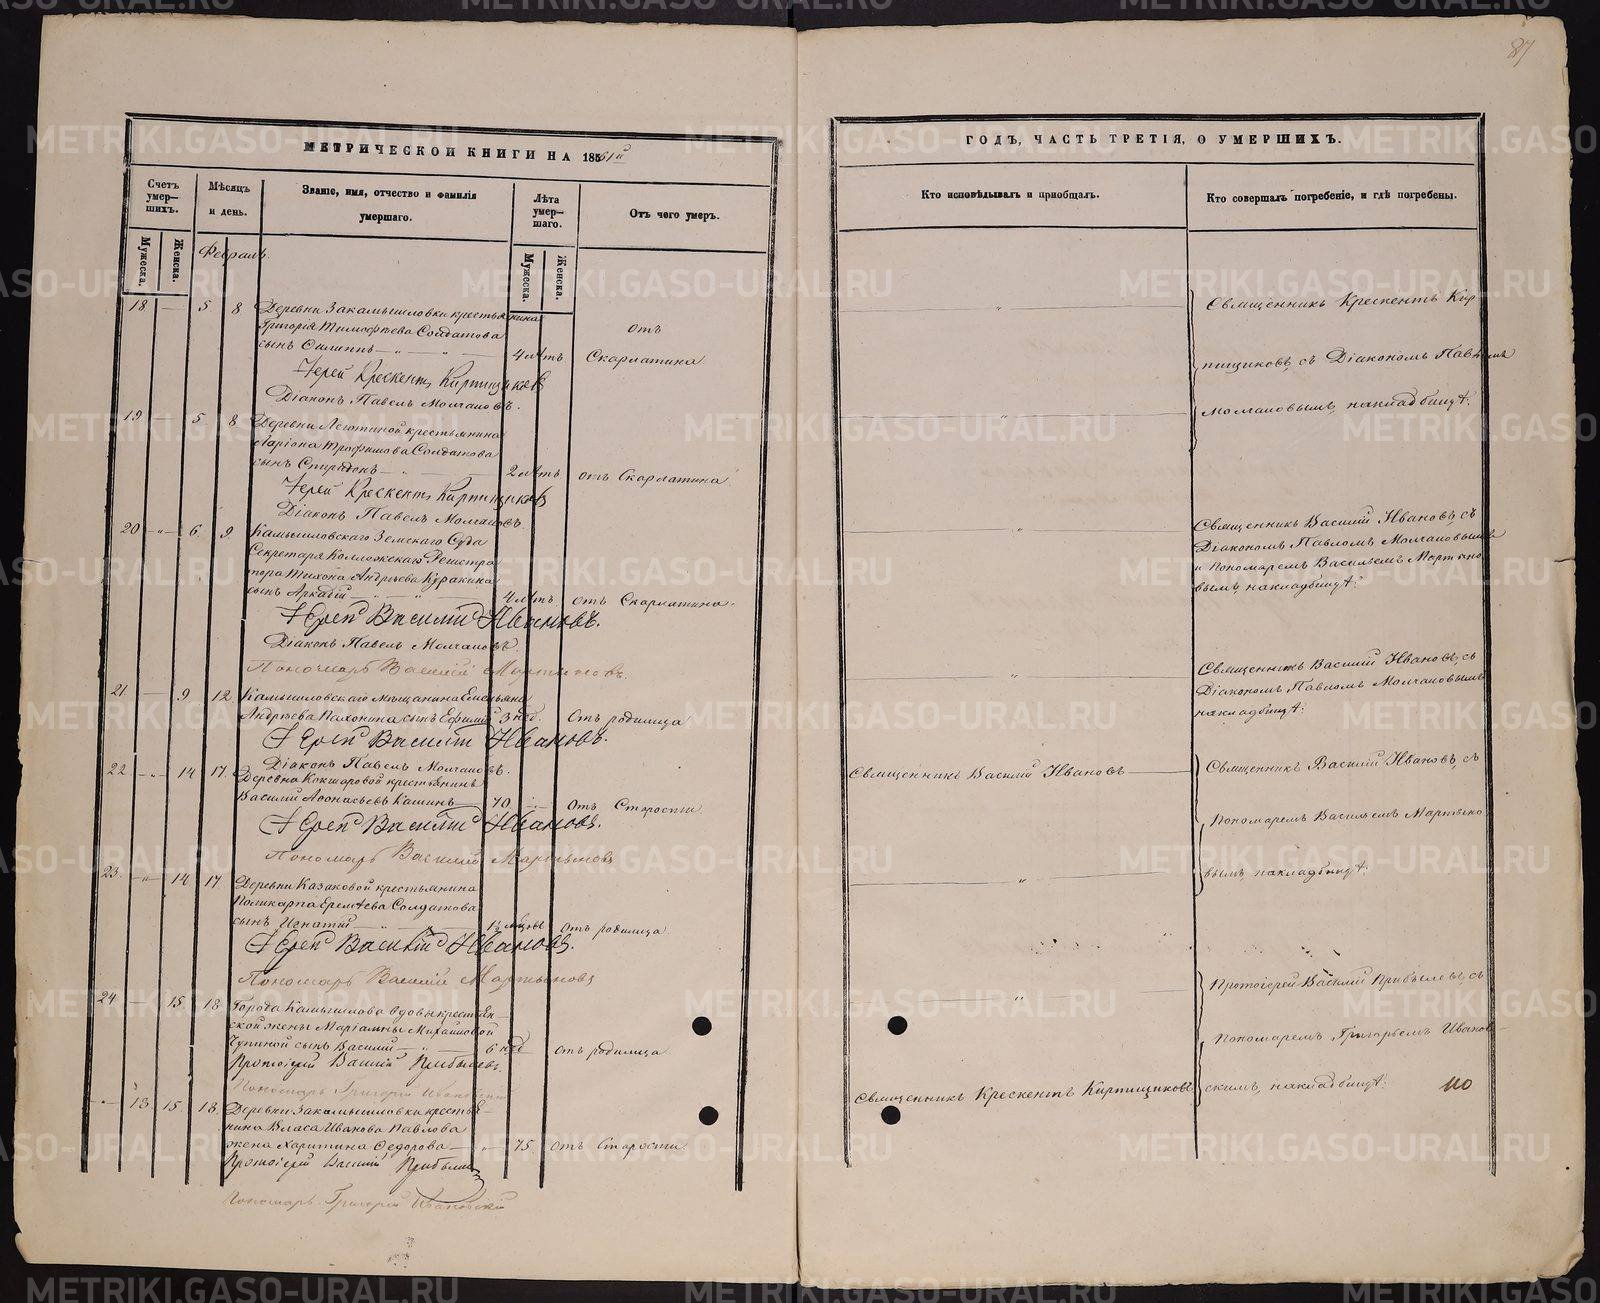 87
МЕТРИЧЕСКОЙ КНИГИ НА 1861й
Счетъ умерших. Мѣсяцъ и день. Званіе, имя, отчество и фамилія умершаго. Лѣта умершаго. Отъ чего умеръ.
Мужеска. Женска. Мужеска. Женска.
Февраль.
18 — 5 8 Деревни Закамышловки крестьянина
Григорія Тимофѣева Солдатова отъ
сынъ Филиппъ — „ — 4 лѣтъ Скарлатина
Іерей Крескентъ Кирпищиковъ
Діаконъ Павелъ Молчановъ.
19 5 8 Деревни крестьянина
Ларіона Трофимова Солдатова
сынъ Спиридонъ — „ — 2 лѣтъ отъ Скарлатина.
Іерей Крескентъ Кирпищиковъ
Діаконъ Павелъ Молчановъ.
20 — „ — 6 9 Камышловскаго Земскаго Суда
Секретаря Коллежскаго Регистра
тора Тихона Андреева Куракина
сынъ Аркадій — „ — „ — 4 лѣтъ отъ Скарлатина.
Іерей Василій Ивановъ.
Діаконъ Павелъ Молчановъ.
Пономарь Василій Мартыновъ.
21 — 9 12 Камышловскаго мѣщанина Емельяна
Андреева Пахонина сынъ Ефимій 3 нед. Отъ родимца
Іерей Василій Ивановъ.
Діаконъ Павелъ Молчановъ.
22 — „ — 14 17. Деревни Кокшаровой крестьянинъ
Василій Афонасьевъ Кашинъ — 70 Отъ Старости.
Іерей Василій Ивановъ.
Пономарь Василій Мартыновъ
23. — „ — 14 17 Деревни Казаковой крестьянина
Поликарпа Еремѣева Солдатова
сынъ Игнатій — 1½ мѣсяцовъ отъ родимца
Іерей Василій Ивановъ.
Пономарь Василій Мартыновъ
24 — 15 18 Города Камышлова вдовы крестьян-
ской жены Маріамны Михайловой
Чупиной сынъ Василій — „ — 6 нед отъ родимца
Протоіерей Василій Прибылевъ.
Пономарь Григорій Ивановскій
— „ — 13. 15. 18. Деревни Закамышловки крестья-
нина Власа Иванова Павлова
жена Харитина Федорова — „ 75. отъ Старости
Протоіерей Василій Прибылевъ
Пономарь Григорій Ивановскій
ГОДЪ, ЧАСТЬ ТРЕТІЯ, О УМЕРШИХЪ.
Кто исповѣдывалъ и пріобщалъ. Кто совершалъ погребеніе, и гдѣ погребены.
„ Священникъ Крескентъ Кир
пищиковъ, съ Діакономъ Павломъ
„ Молчановымъ, на кладбищѣ.
„ Священникъ Василій Ивановъ, съ
Діакономъ Павломъ Молчановымъ
и Пономаремъ Васильемъ Мартыно
вымъ, на кладбищѣ.
„ Священникъ Василій Ивановъ, съ
Діакономъ Павломъ Молчановымъ
на кладбищѣ.
Священникъ Василій Ивановъ — Священникъ Василій Ивановъ, съ
Пономаремъ Васильемъ Мартыно
„ вымъ, на кладбищѣ.
„ Протоіерей Василій Прибылевъ, съ
Пономаремъ Григорьемъ Иванов-
Священникъ Крескентъ Кирпищиковъ скимъ, на кладбищѣ. 110
METRIKI.GASO-URAL.RU